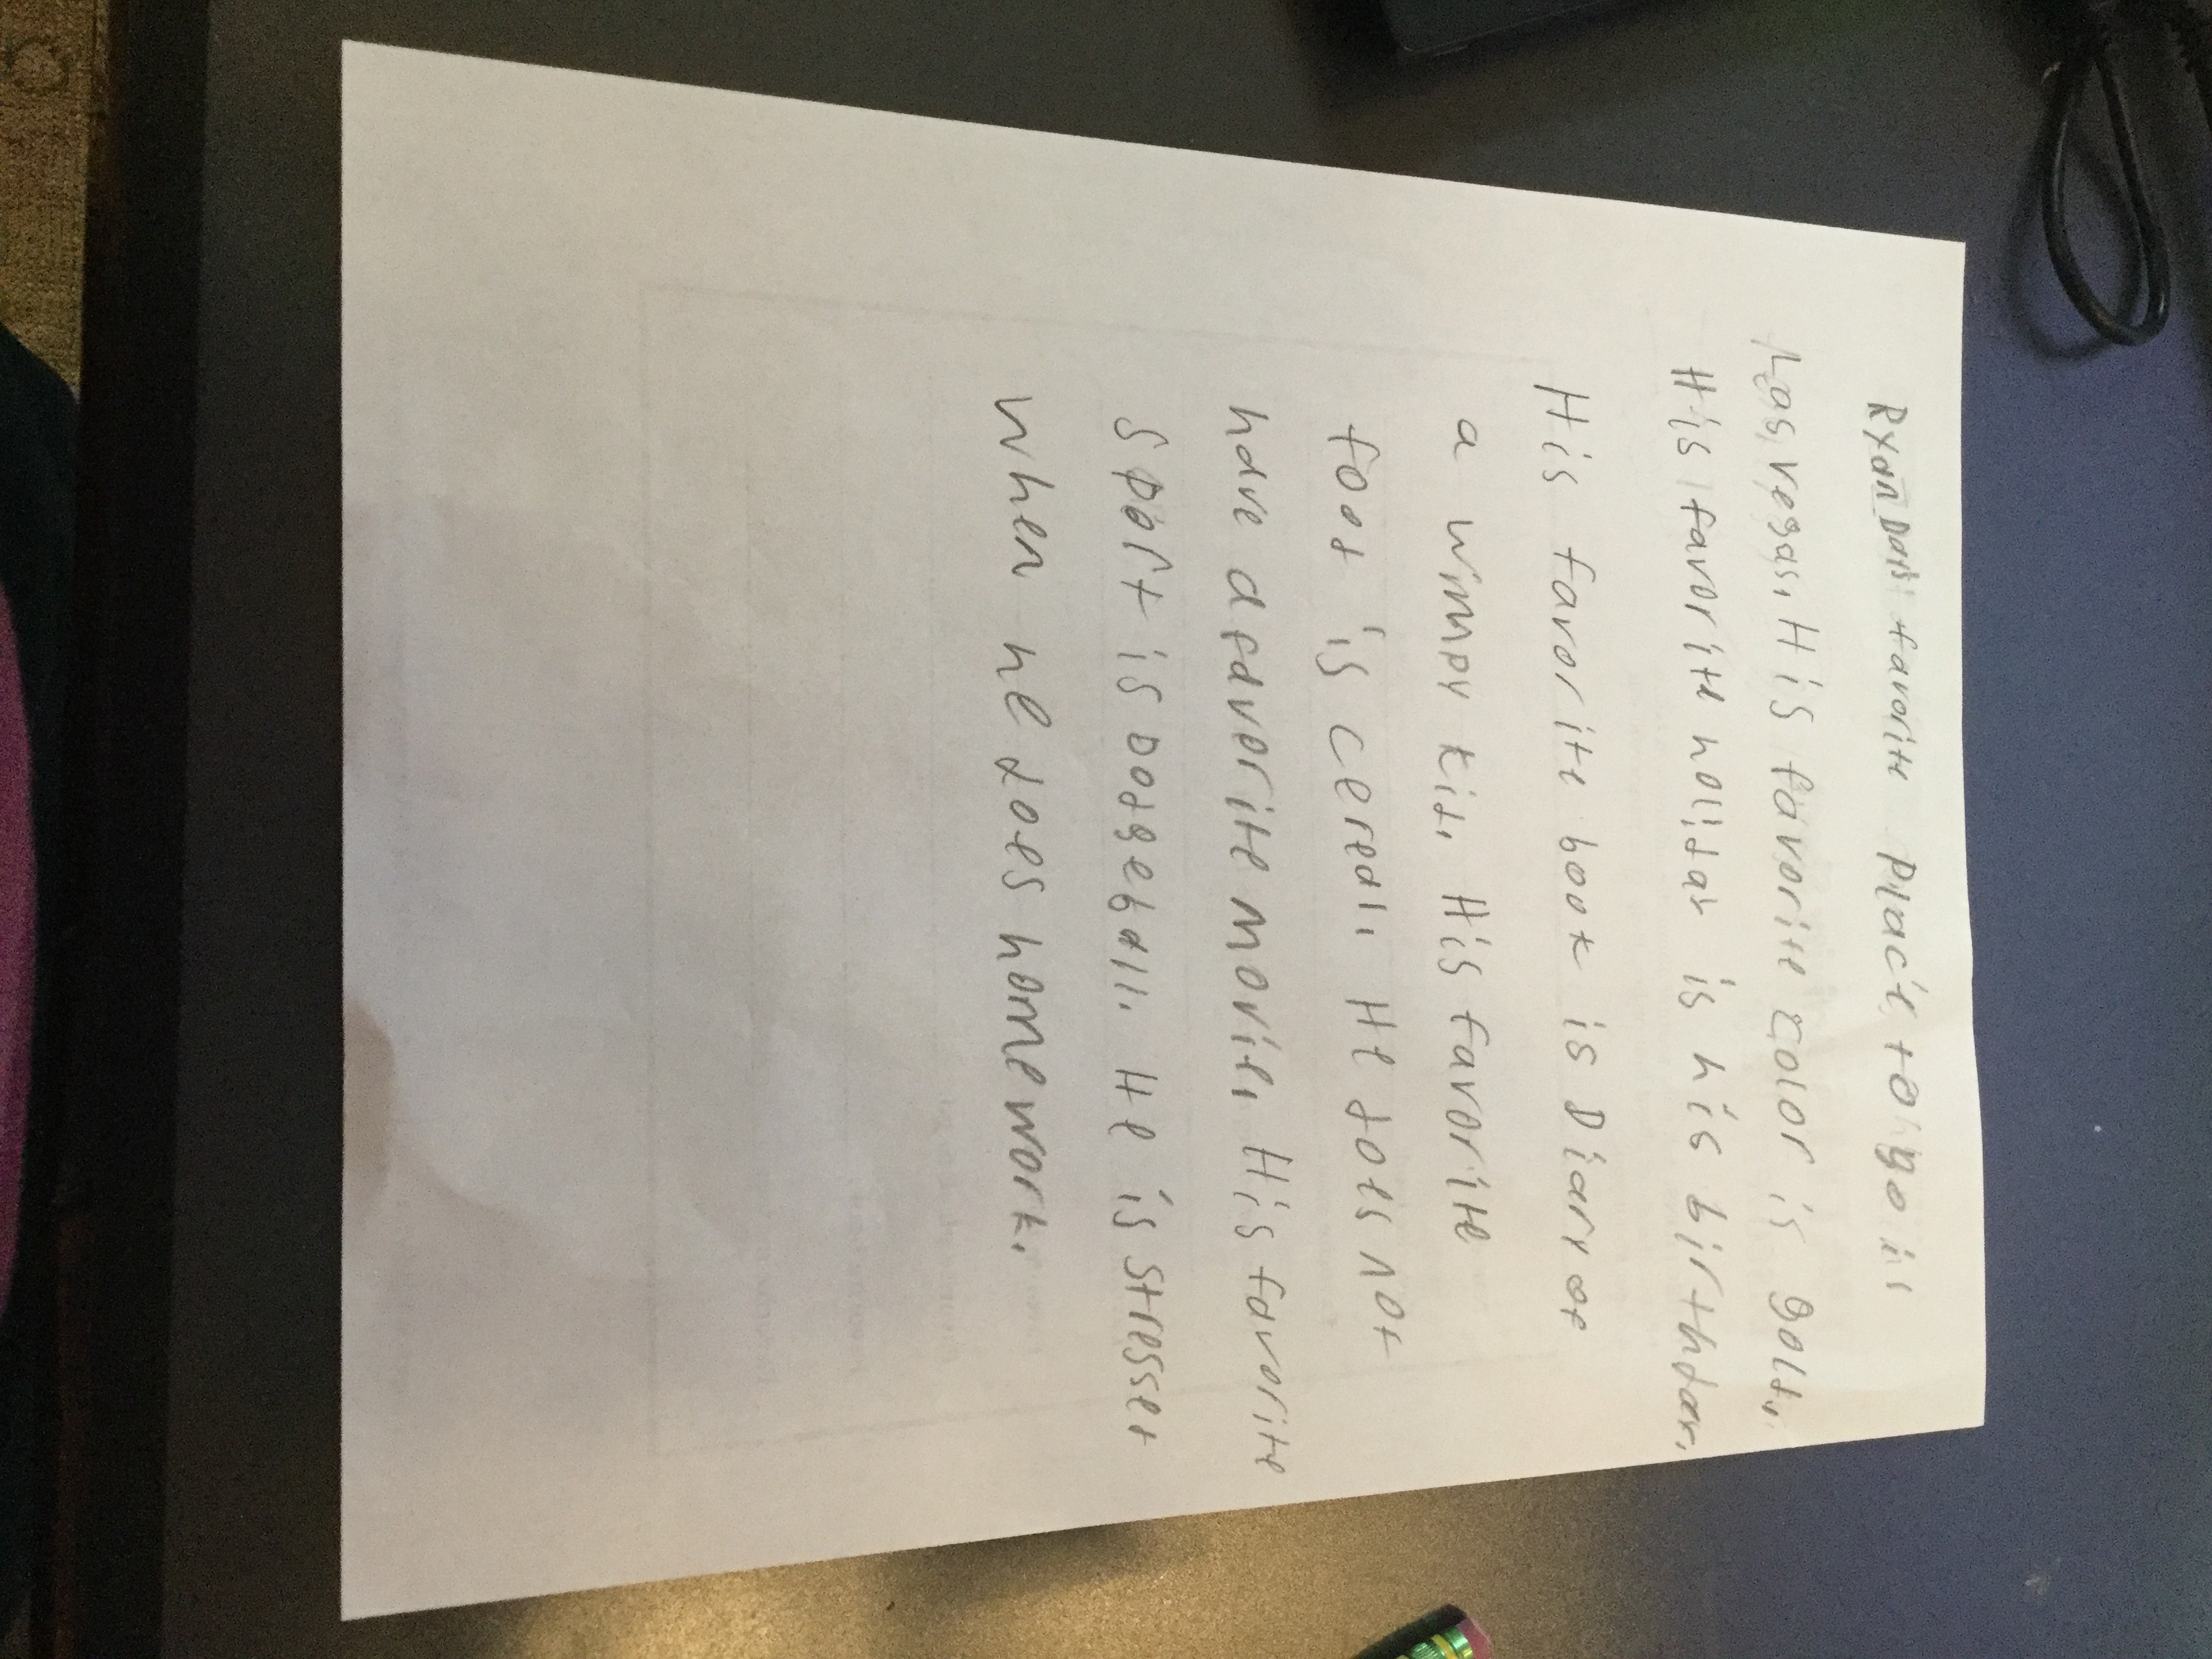 Ryan Day's favorite Place to go is
Las vegas. His favorite color is gold.
His favorite holiday is his birthday.
His favorite book is Diary of
a wimpy kid. His favorite
food is cereal. He does not
have a favorite movie. His favorite
sport is Dodgeball. He is stressed
when he does homework.